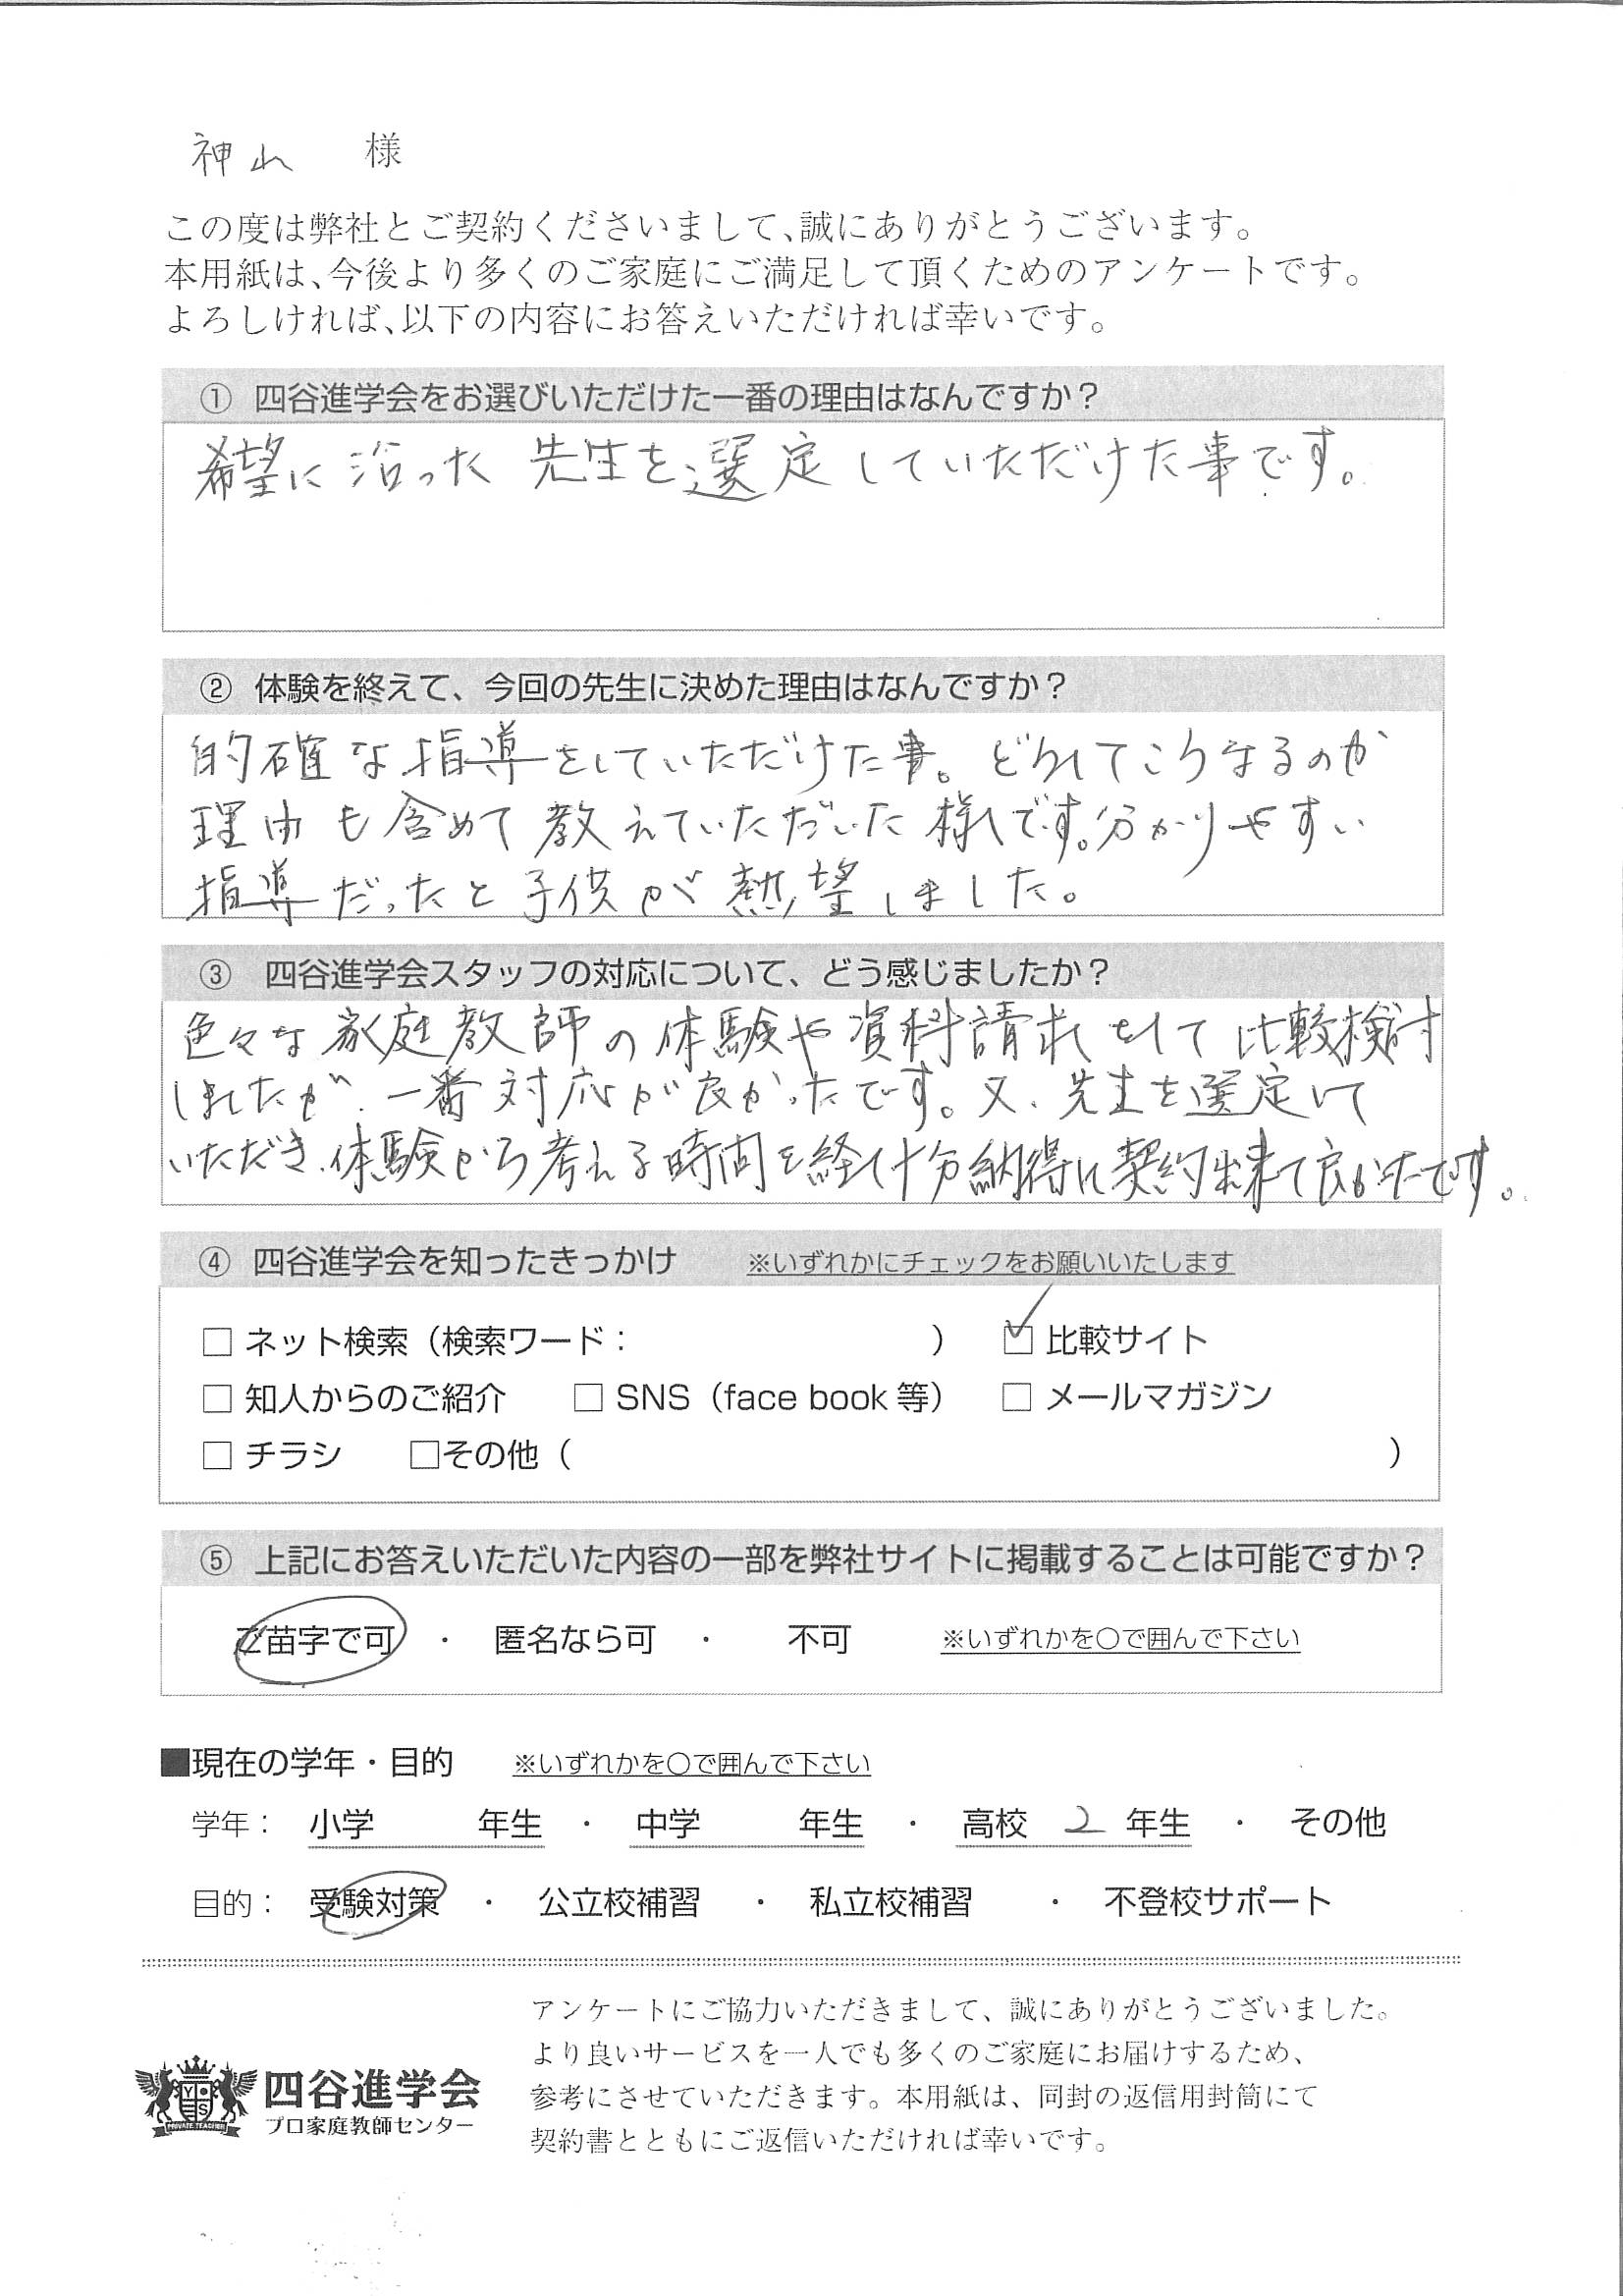 神山 様
この度は弊社とご契約くださいまして、誠にありがとうございます。
本用紙は、今後より多くのご家庭にご満足して頂くためのアンケートです。
よろしければ、以下の内容にお答えいただければ幸いです。
① 四谷進学会をお選びいただけた一番の理由はなんですか？
希望に沿った 先生を選定していただけた事です。
② 体験を終えて、今回の先生に決めた理由はなんですか？
的確な指導をしていただけた事。どうしてこうなるのか
理由も含めて教えていただいた様です。分かりやすい
指導だったと子供が熱望しました。
③ 四谷進学会スタッフの対応について、どう感じましたか？
色々な家庭教師の体験や資料請求をして比較検討
しましたが、一番対応が良かったです。又、先生を選定して
いただき、体験から考える時間を経て十分納得に契約出来て良かったです。
④ 四谷進学会を知ったきっかけ ※いずれかにチェックをお願いいたします
□ ネット検索（検索ワード： ） ☑ 比較サイト
□ 知人からのご紹介 □ SNS（face book 等） □ メールマガジン
□ チラシ □その他（ ）
⑤ 上記にお答えいただいた内容の一部を弊社サイトに掲載することは可能ですか？
ご苗字で可 ・ 匿名なら可 ・ 不可 ※いずれかを〇で囲んで下さい
■現在の学年・目的 ※いずれかを〇で囲んで下さい
学年： 小学 年生 ・ 中学 年生 ・ 高校 2 年生 ・ その他
目的： 受験対策 ・ 公立校補習 ・ 私立校補習 ・ 不登校サポート
アンケートにご協力いただきまして、誠にありがとうございました。
より良いサービスを一人でも多くのご家庭にお届けするため、
参考にさせていただきます。本用紙は、同封の返信用封筒にて
契約書とともにご返信いただければ幸いです。
Y S
PRIVATE TEACHER
四谷進学会
プロ家庭教師センター